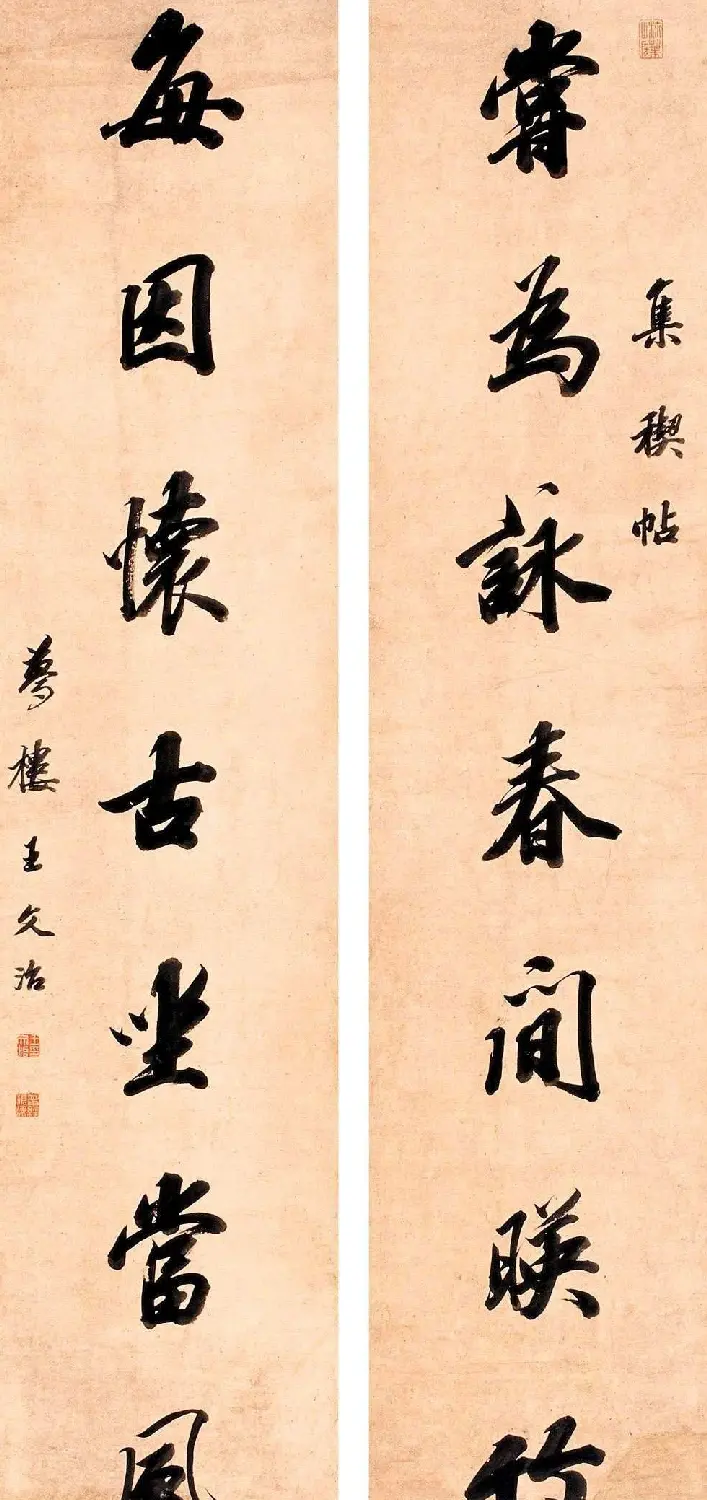 集稧帖
嘗為詠春間暎竹
每因懷古坐當風
夢樓王文治